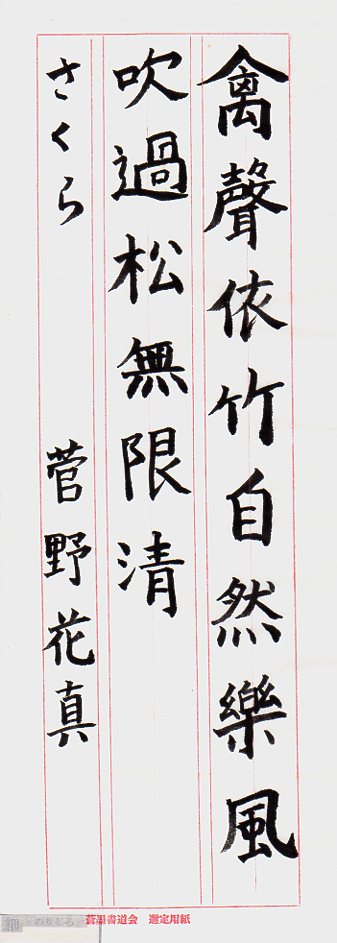 禽聲依竹自然樂風
吹過松無限清
さくら 菅野花真
蒼墨書道会 選定用紙
細 のりしろ